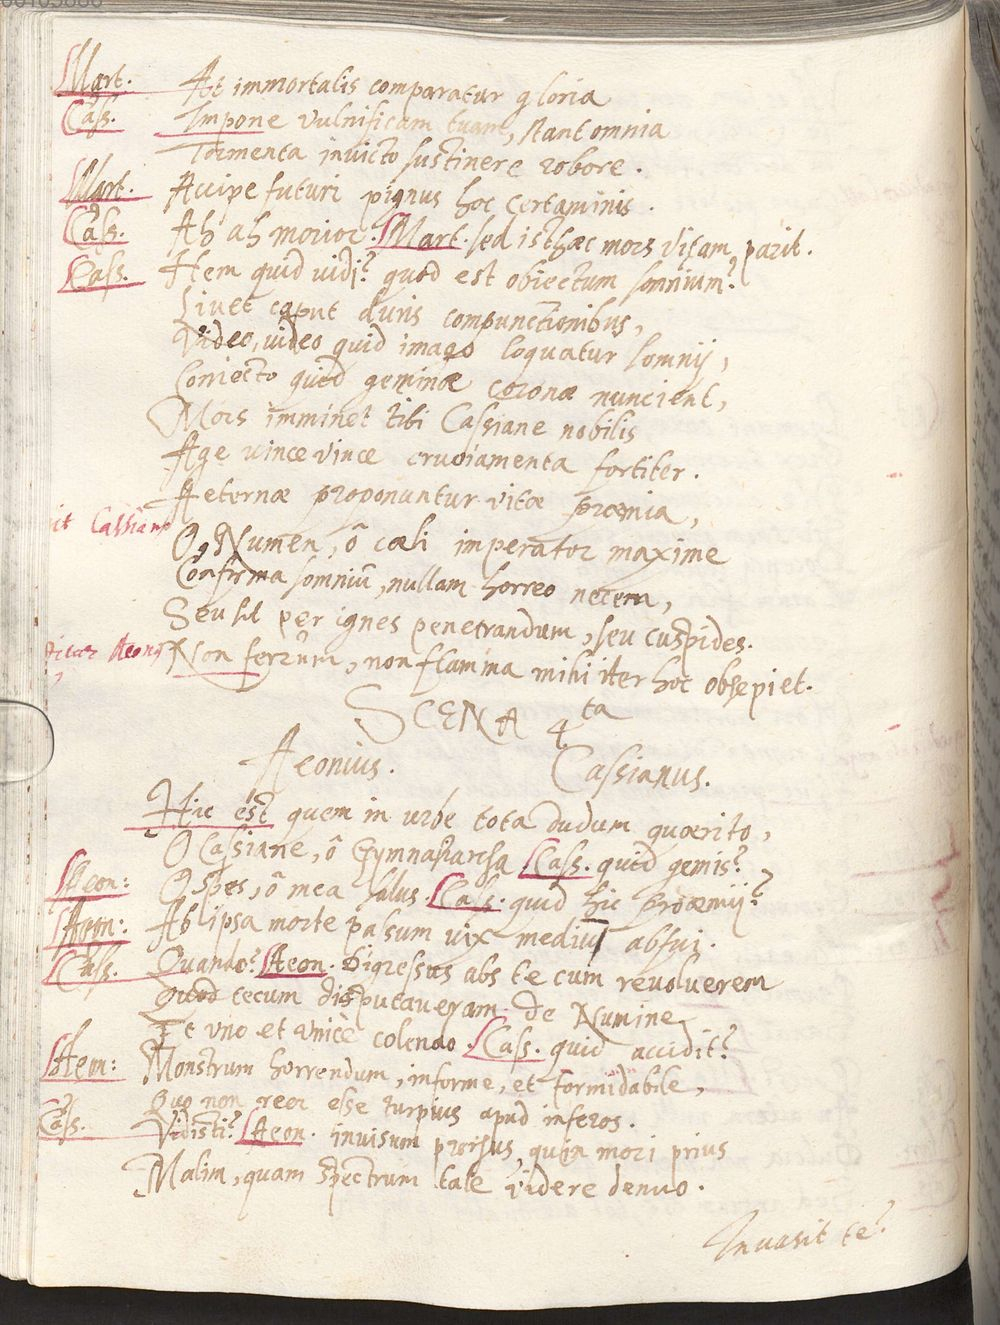 Mart. At immortalis comparatur gloria
Cass. Impone vulnificam tuam, stant omnia
Tormenta invicto sustinere robore.
Mart. Accipe futuri pignus hoc certaminis.
Cass. Ah ah morior. Mart. sed isthæc mors vitam parit.
Cass. Hem quid vidi? quod est obiectum somnium?
Livet caput duris compunctionibus,
Video, video quid imago loquatur somnij,
Coniecto quid geminæ coronæ nuncient,
Mors imminet tibi Cassiane nobilis
Age vince vince cruciamenta fortiter.
Aeternæ proponuntur vitæ præmia,
it Cassianus
O Numen, ô cæli imperator maxime
Confirma somniū, nullam horreo necem,
Seu sit per ignes penetrandum, seu cuspides.
Aeonius Non ferrum, non flamma mihi iter hoc obsepiet.
SCENA 4ta
Aeonius. Cassianus.
Hic est quem in urbe tota dudum quærito,
O Cassiane, ô Gymnasiarcha Cass. quid gemis?
Aeon: O spes, ô mea salus Cass. quid hic proœmij?
Aeon: Ab ipsa morte passum vix medium absui.
Cass. Quando? Aeon. Digressus abs te cum revolverem
Quod tecum disputaveram de Numine
Et uno et unicè colendo. Cass. quid accidit?
Aeon: Monstrum horrendum, informe, et formidabile,
Quo non reor esse turpius apud inferos.
Cass. Vidisti? Aeon. invisum prorsus, quin mori prius
Malim, quam spectrum tale videre denuo.
Invasit te?